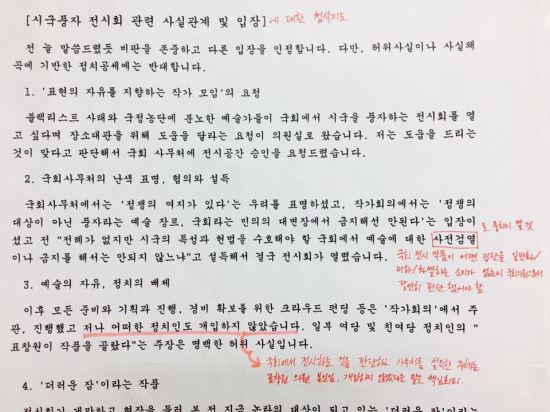 [시국풍자 전시회 관련 사실관계 및 입장]에 대한 첨삭지도
전 늘 말씀드렸듯 비판을 존중하고 다른 입장을 인정합니다. 다만, 허위사실이나 사실왜
곡에 기반한 정치공세에는 반대합니다.
1. '표현의 자유를 지향하는 작가 모임'의 요청
블랙리스트 사태와 국정농단에 분노한 예술가들이 국회에서 시국을 풍자하는 전시회를 열
고 싶다며 장소대관을 위해 도움을 달라는 요청이 의원실로 왔습니다. 저는 도움을 드리는
것이 맞다고 판단해서 국회 사무처에 전시공간 승인을 요청드렸습니다.
2. 국회사무처의 난색 표명, 협의와 설득
국회사무처에서는 '정쟁의 여지가 있다'는 우려를 표명하셨고, 작가회의에서는 '정쟁의
대상이 아닌 풍자라는 예술 장르, 국회라는 민의의 대변장에서 금지해선 안된다'는 입장이
셨고 전 "전례가 없지만 시국의 특성과 헌법을 수호해야 할 국회에서 예술에 대한 사전검열
로 퉁치지 말 것
이나 금지를 해서는 안되지 않느냐"고 설득해서 결국 전시회가 열렸습니다.
국회 전시 작품이 어떤 집단을 일반화/
비하/차별하는 소지가 없는지 국회사무처에서
당연히 판단했어야 함
3. 예술의 자유, 정치의 배제
이후 모든 준비와 기획과 진행, 경비 확보를 위한 크라우드 펀딩 등은 '작가회의'에서 주
관, 진행했고 저나 어떠한 정치인도 개입하지 않았습니다. 일부 여당 및 친여당 정치인의 "
표창원이 작품을 골랐다"는 주장은 명백한 허위 사실입니다.
국회에서 전시하는 것을 판단하고 사무처를 설득한 주체는
표창원 의원 본인임. 개입하지 않았다는 말은 책임회피.
4. '더러운 잠'이라는 작품